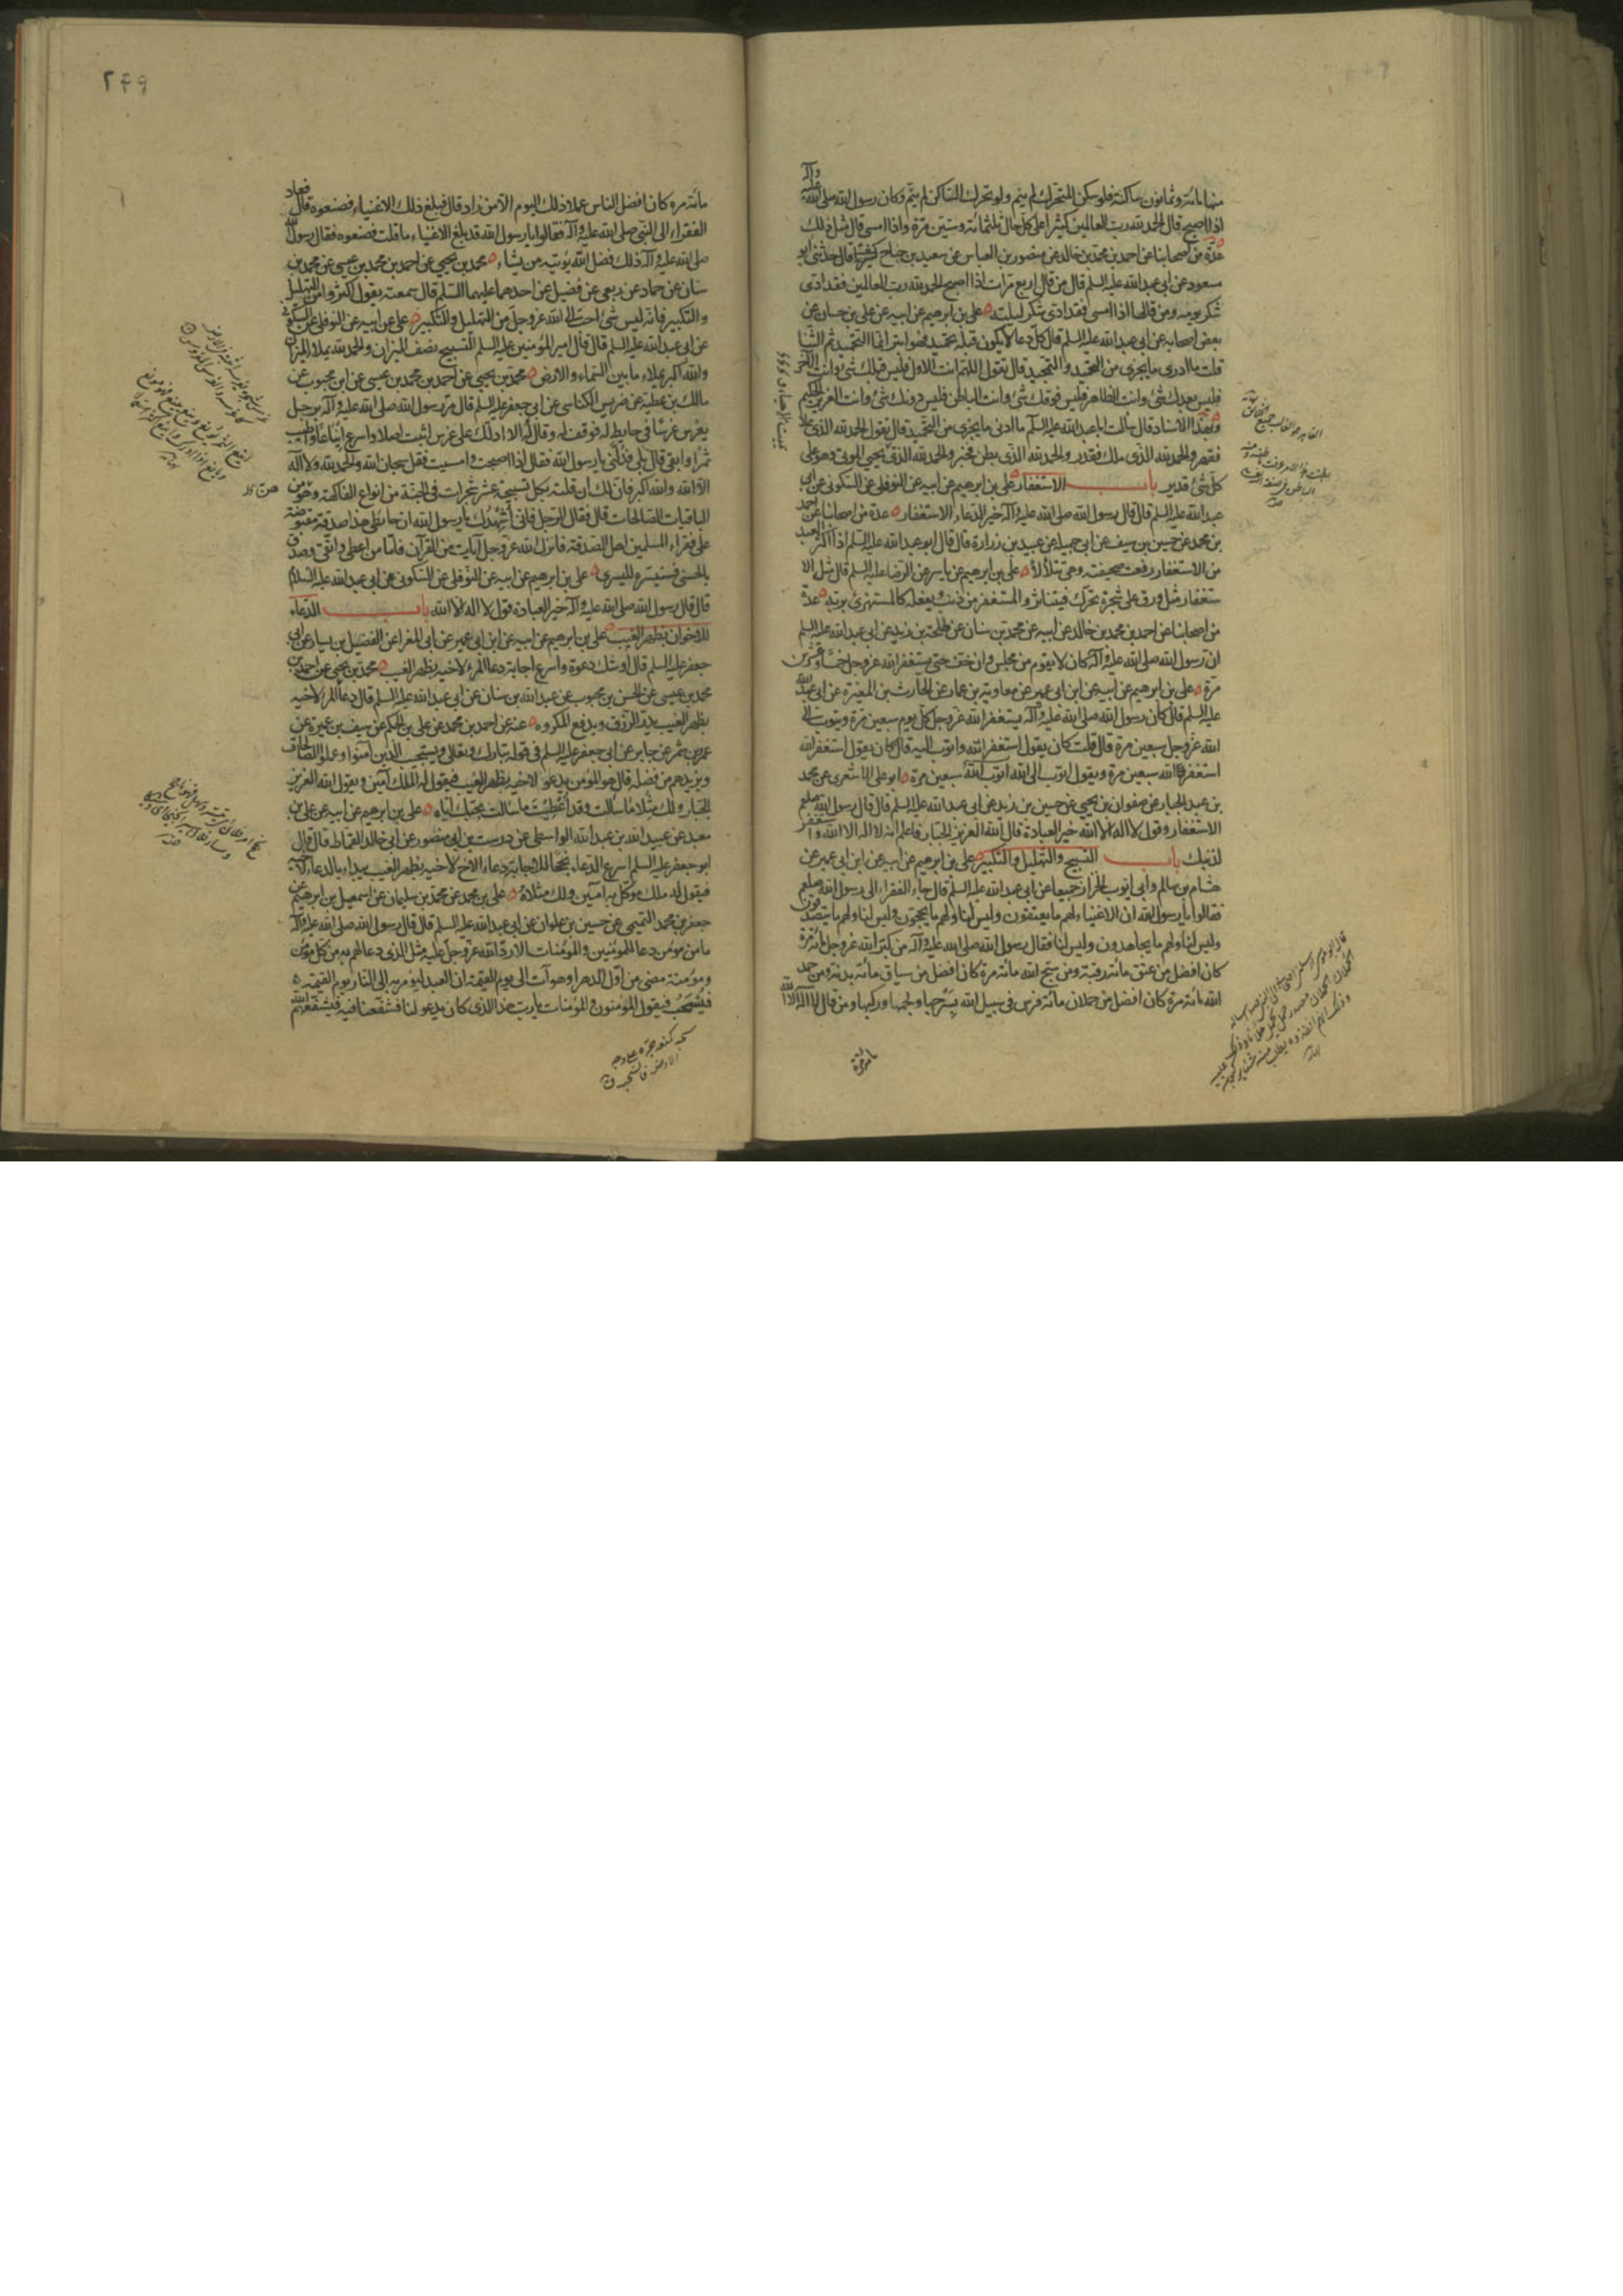 منها مائة وثمانون ساكنة فلو سكن المتحرك لم ينم ولو تحرك الساكن لم ينم وكان رسول الله صلى الله عليه وآله
اذا اصبح قال الحمد لله رب العالمين كثيرا على كل حال ثلثمائة وستين مرة واذا امسى قال مثل ذلك
عدة من اصحابنا عن احمد بن محمد بن خالد عن منصور بن العباس عن سعيد بن جناح قال حدثني ابو
مسعود عن ابي عبد الله عليه السلم قال من قال اربع مرات اذا اصبح الحمد لله رب العالمين فقد ادى
شكر يومه ومن قالها اذا امسى فقد ادى شكر ليلته علي بن ابرهيم عن ابيه عن علي بن حسان عن
بعض اصحابه عن ابي عبد الله عليه السلم قال كل دعاء لا يكون قبله تحميد فهو ابتر انما التحميد ثم الثنا
قلت ما ادري ما يجزي من التحميد والتمجيد قال تقول اللهم انت الاول فليس قبلك شئ وانت الآخر
فليس بعدك شئ وانت الظاهر فليس فوقك شئ وانت الباطن فليس دونك شئ وانت العزيز الحكيم
وبهذا الاسناد قال سألت ابا عبد الله عليه السلم ما ادنى ما يجزي من التحميد قال تقول الحمد لله الذي علا
فقهر والحمد لله الذي ملك فقدر والحمد لله الذي بطن فخبر والحمد لله الذي يحيي الموتى وهو على
كل شئ قدير باب الاستغفار علي بن ابرهيم عن ابيه عن النوفلي عن السكوني عن ابي
عبد الله عليه السلم قال قال رسول الله صلى الله عليه وآله خير الدعاء الاستغفار عدة من اصحابنا عن احمد
بن محمد عن حسين بن سيف عن ابي جميلة عن عبيد بن زرارة قال قال ابو عبد الله عليه السلم اذا اكثر العبد
من الاستغفار رفعت صحيفته وهي تتلألأ علي بن ابرهيم عن ياسر عن الرضا عليه السلم قال مثل الا
ستغفار مثل ورق على شجرة تحرك فيتناثر والمستغفر من ذنب ويفعله كالمستهزئ بربه عدة
من اصحابنا عن احمد بن محمد بن خالد عن ابيه عن محمد بن سنان عن طلحة بن زيد عن ابي عبد الله عليه السلم
ان رسول الله صلى الله عليه وآله كان لا يقوم من مجلس وان خف حتى يستغفر الله عز وجل خمسا وعشرين
مرة علي بن ابرهيم عن ابيه عن ابن ابي عمير عن معاوية بن عمار عن الحارث بن المغيرة عن ابي عبد الله
عليه السلم قال كان رسول الله صلى الله عليه وآله يستغفر الله عز وجل كل يوم سبعين مرة ويتوب الى
الله عز وجل سبعين مرة قال قلت كان يقول استغفر الله واتوب اليه قال كان يقول استغفر الله
استغفر الله سبعين مرة ويقول اتوب الى الله اتوب الى الله سبعين مرة ابو علي الاشعري عن محمد
بن عبد الجبار عن صفوان بن يحيى عن حسين بن زيد عن ابي عبد الله عليه السلم قال قال رسول الله صلعم
الاستغفار وقول لا اله الا الله خير العبادة قال الله العزيز الجبار فاعلم انه لا اله الا الله واستغفر
لذنبك باب التسبيح والتهليل والتكبير علي بن ابرهيم عن ابيه عن ابن ابي عمير عن
هشام بن سالم وابي ايوب الخزاز جميعا عن ابي عبد الله عليه السلم قال جاء الفقراء الى رسول الله صلعم
فقالوا يا رسول الله ان الاغنياء لهم ما يعتقون وليس لنا ولهم ما يحجون وليس لنا ولهم ما يتصدقون
وليس لنا ولهم ما يجاهدون وليس لنا فقال رسول الله صلى الله عليه وآله من كبر الله عز وجل مائة مرة
كان افضل من عتق مائة رقبة ومن سبح الله مائة مرة كان افضل من سياق مائة بدنة ومن حمد
الله مائة مرة كان افضل من حملان مائة فرس في سبيل الله بسرجها ولجمها وركبها ومن قال لا اله الا الله
مائة مرة
٢٤٩
مائة مره كان افضل الناس عملا ذلك اليوم الا من زاد قال فبلغ ذلك الاغنياء فصنعوه قال فعاد
الفقراء الى النبي صلى الله عليه وآله فقالوا يا رسول الله قد بلغ الاغنياء ما قلت فصنعوه فقال رسول الله
صلى الله عليه وآله ذلك فضل الله يؤتيه من يشاء محمد بن يحيى عن احمد بن محمد بن عيسى عن محمد بن
سنان عن حماد عن ربعي عن فضيل عن احدهما عليهما السلم قال سمعته يقول اكثروا من التهليل
والتكبير فانه ليس شئ احب الى الله عز وجل من التهليل والتكبير علي عن ابيه عن النوفلي عن السكوني
عن ابي عبد الله عليه السلم قال قال امير المؤمنين عليه السلم التسبيح نصف الميزان والحمد لله يملاء الميزان
والله اكبر يملاء ما بين السماء والارض محمد بن يحيى عن احمد بن محمد بن عيسى عن ابن محبوب عن
مالك بن عطية عن ضريس الكناسي عن ابي جعفر عليه السلم قال مر رسول الله صلى الله عليه وآله برجل
يغرس غرسا في حايط له فوقف له وقال الا ادلك على غرس اثبت اصلا واسرع ايناعا واطيب
ثمرا وابقى قال بلى فدلني يا رسول الله فقال اذا اصبحت وامسيت فقل سبحان الله والحمد لله ولا اله
الا الله والله اكبر فان لك ان قلته بكل تسبيحة عشر شجرات في الجنة من انواع الفاكهة وهو من
الباقيات الصالحات قال فقال الرجل فاني اشهدك يا رسول الله ان حائطي هذا صدقة مقبوضة
على فقراء المسلمين اهل الصدقة فانزل الله عز وجل آيات من القرآن فاما من اعطى واتقى وصدق
بالحسنى فسنيسره لليسرى علي بن ابرهيم عن ابيه عن النوفلي عن السكوني عن ابي عبد الله عليه السلام
قال قال رسول الله صلى الله عليه وآله خير العبادة قول لا اله الا الله باب الدعاء
للاخوان بظهر الغيب علي بن ابرهيم عن ابيه عن ابن ابي عمير عن ابي المغرا عن الفضيل بن يسار عن ابي
جعفر عليه السلم قال اوشك دعوة واسرع اجابة دعاء المرء لاخيه بظهر الغيب محمد بن يحيى عن احمد بن
محمد بن عيسى عن الحسن بن محبوب عن عبد الله بن سنان عن ابي عبد الله عليه السلم قال دعاء المرء لاخيه
بظهر الغيب يدر الرزق ويدفع المكروه عنه عن احمد بن محمد عن علي بن الحكم عن سيف بن عميرة عن
عمرو بن شمر عن جابر عن ابي جعفر عليه السلم في قوله تبارك وتعالى ويستجيب الذين آمنوا وعملوا الصالحات
ويزيدهم من فضله قال هو المؤمن يدعو لاخيه بظهر الغيب فيقول له الملك آمين ويقول الله العزيز
الجبار ولك مثلا ما سألت وقد اعطيت ما سألت بحبك اياه علي بن ابرهيم عن ابيه عن علي بن
معبد عن عبيد الله بن عبد الله الواسطي عن درست بن ابي منصور عن ابي خالد القماط قال قال
ابو جعفر عليه السلم اسرع الدعاء نجحا للاجابة دعاء الاخ لاخيه بظهر الغيب يبداء بالدعاء لاخيه
فيقول له ملك موكل به آمين ولك مثلاه علي بن محمد عن محمد بن سليمان عن اسمعيل بن ابرهيم عن
جعفر بن محمد التميمي عن حسين بن علوان عن ابي عبد الله عليه السلم قال قال رسول الله صلى الله عليه وآله
ما من مؤمن دعا للمؤمنين والمؤمنات الا رد الله عز وجل عليه مثل الذي دعا لهم به من كل مؤمن
ومؤمنة مضى من اول الدهر او هو آت الى يوم القيمة ان العبد ليؤمر به الى النار يوم القيمة
فيسحب فيقول المؤمنون والمؤمنات يا رب هذا الذي كان يدعو لنا فشفعنا فيه فيشفعهم الله